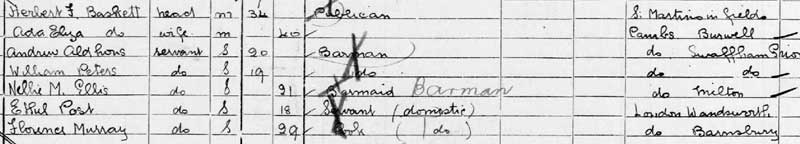 Herbert J. Baskett head m 34 Publican S. Martins in fields
Ada Eliza do wife m 40 Cambs Burwell
Andrew Aldhous servant S 20 Barman do Swaffham Prior
William Peters do S 19 do do do
Nellie M. Ellis do S 21 Barmaid Barman do Milton
Ethel Post do S 18 Servant (domestic) London Wandsworth
Florence Murray do S 29 Cook ( do ) do Barnsbury